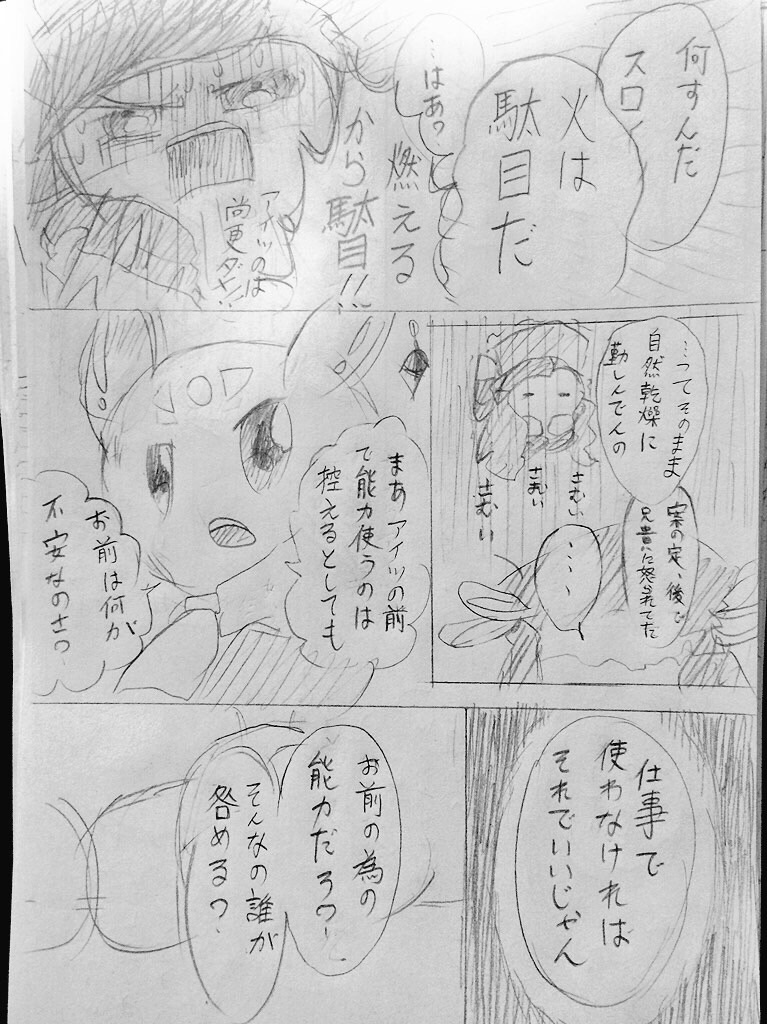 何すんだ
スロイ
火は
駄目だ
…はあ？
燃える
から駄目!!
アイツのは
尚更ダヤ!!
…ってそのまま
自然乾燥に
勤しんでんの
案の定、後で
兄貴に怒られてた
さむい
さむい
さむい
……
まあアイツの前
で能力使うのは
控えるとしても
お前は何が
不安なのさ？
仕事で
使わなければ
それでいいじゃん
お前の為の
能力だろ？
そんなの誰が
咎める？